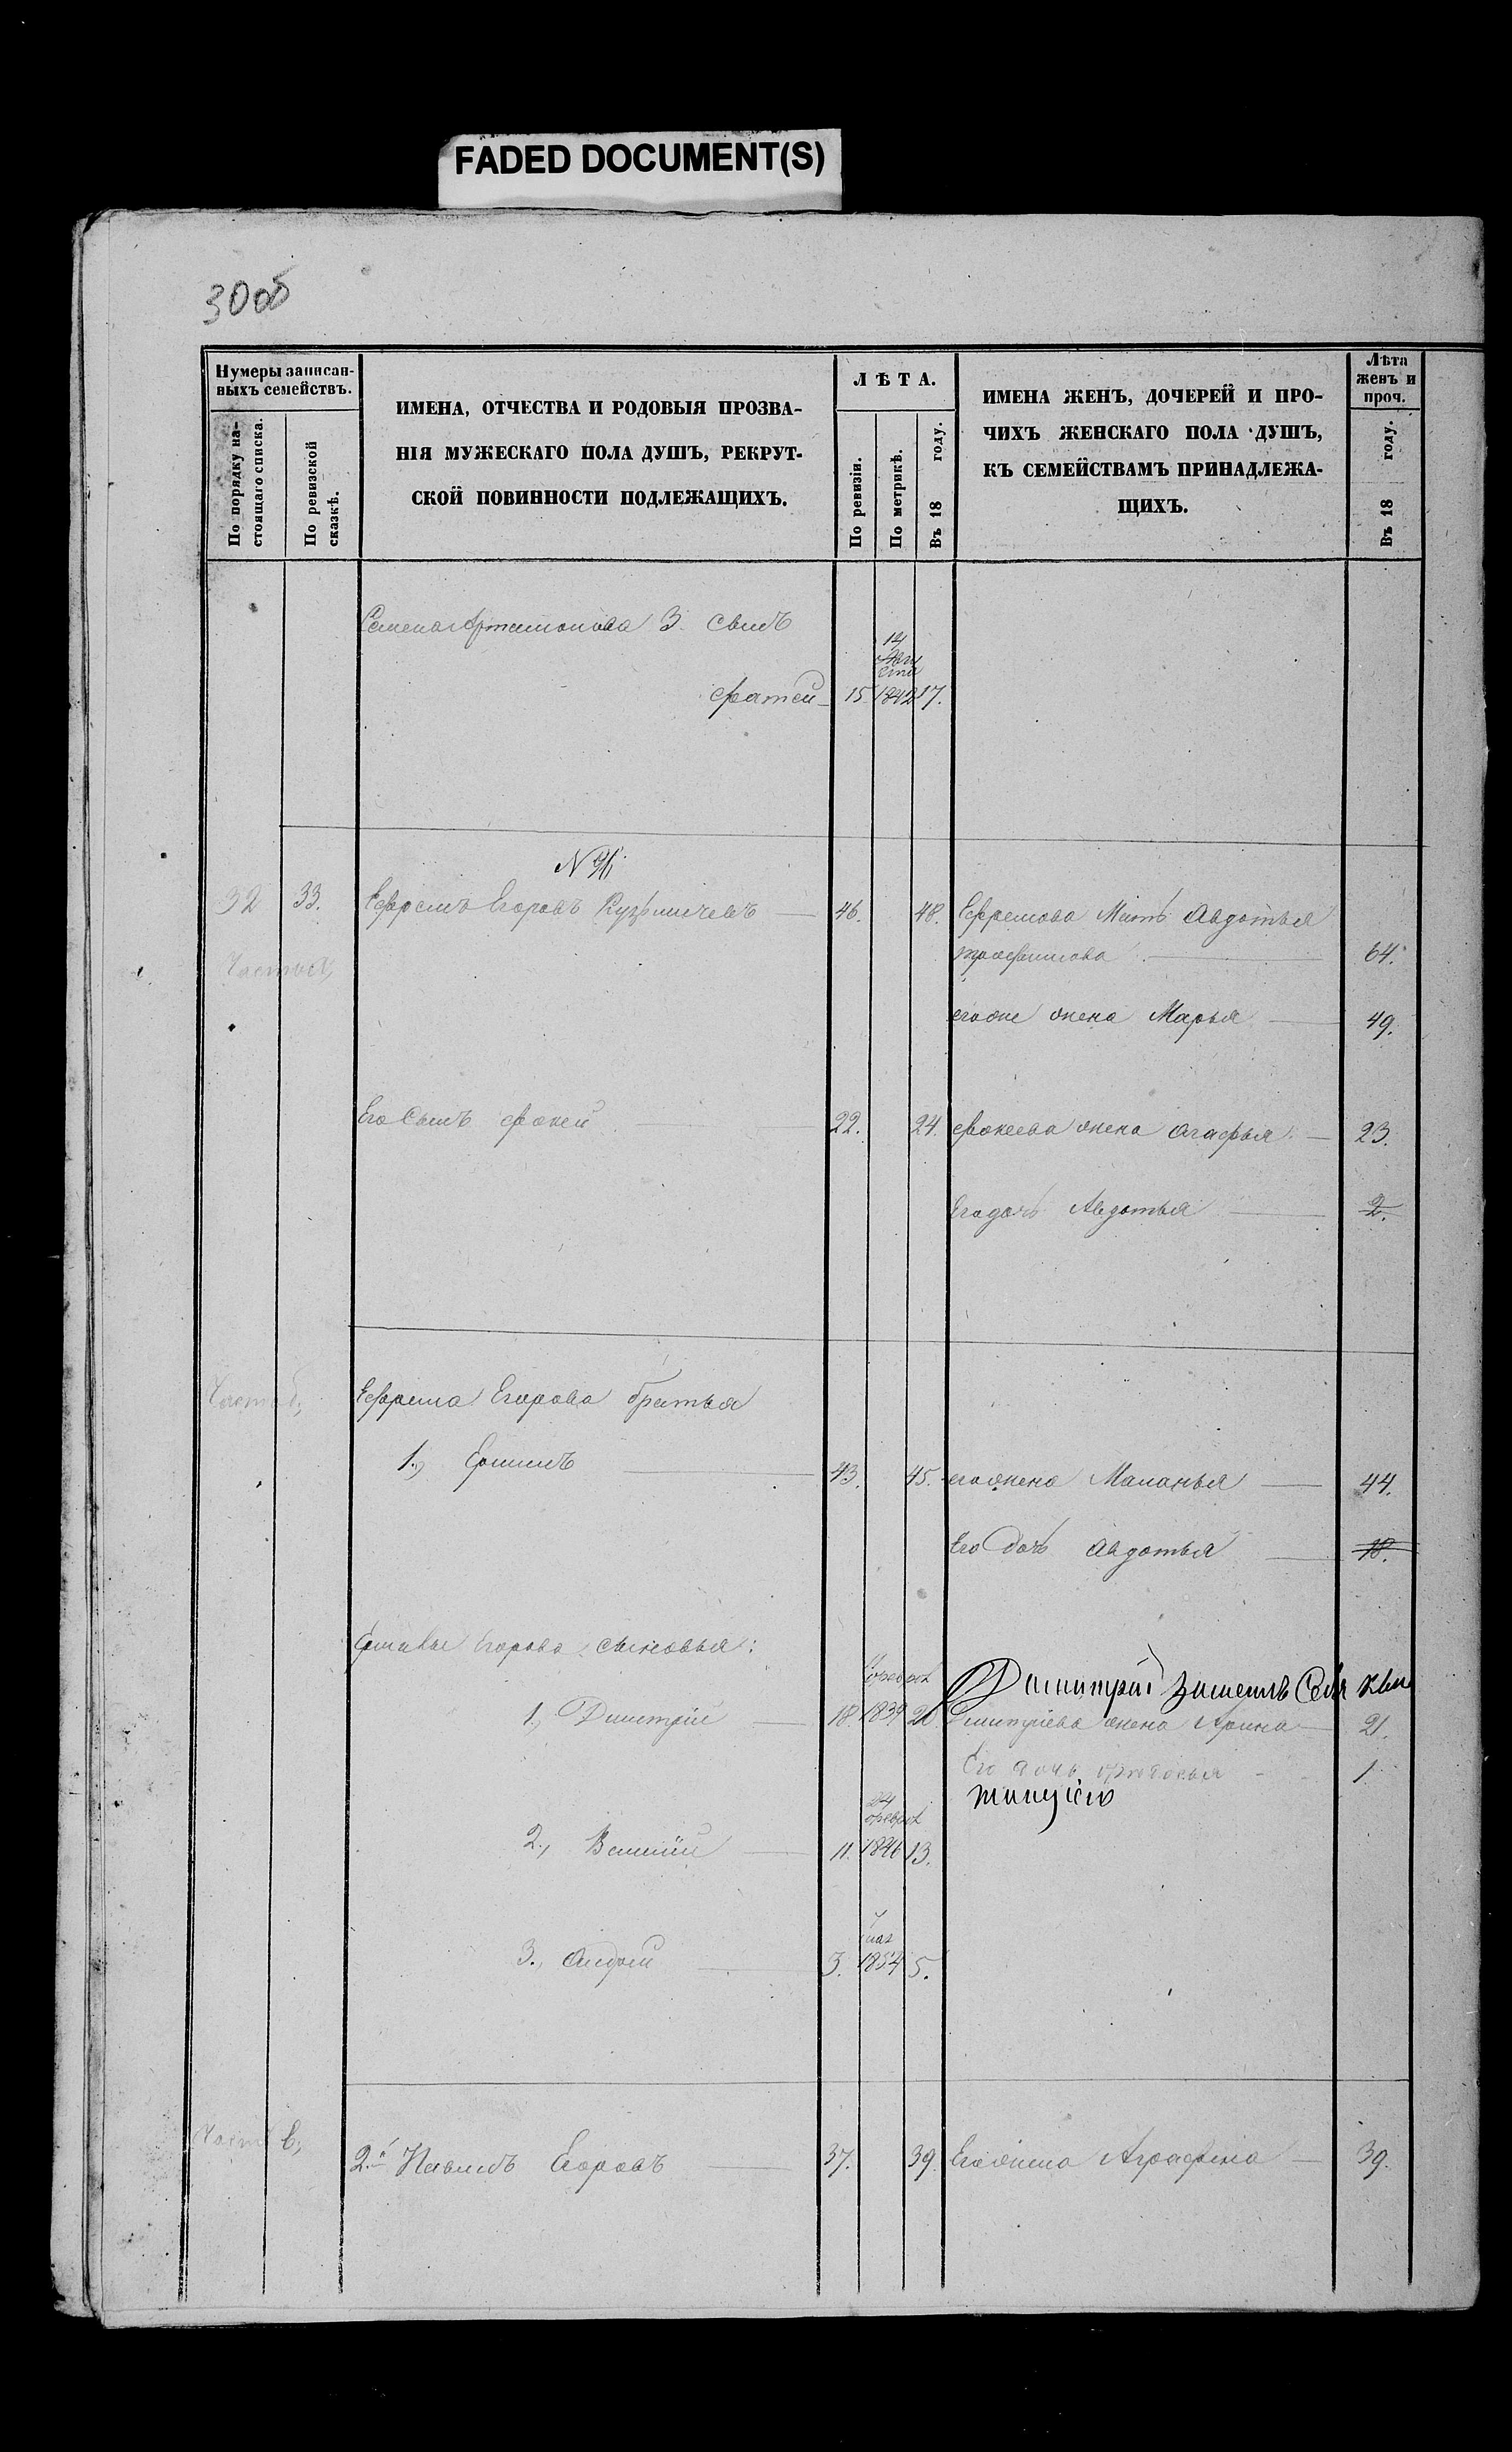 FADED DOCUMENT(S)
30 об
Нумеры записан-
ныхъ семействъ.
По порядку на-
стоящаго списка.
По ревизской
сказкѣ.
ИМЕНА, ОТЧЕСТВА И РОДОВЫЯ ПРОЗВА-
НІЯ МУЖЕСКАГО ПОЛА ДУШЪ, РЕКРУТ-
СКОЙ ПОВИННОСТИ ПОДЛЕЖАЩИХЪ.
ЛѢТА.
По ревизіи.
По метрикѣ.
Въ 18 году.
ИМЕНА ЖЕНЪ, ДОЧЕРЕЙ И ПРО-
ЧИХЪ ЖЕНСКАГО ПОЛА ДУШЪ,
КЪ СЕМЕЙСТВАМЪ ПРИНАДЛЕЖА-
ЩИХЪ.
Лѣта
женъ и
проч.
Въ 18 году.
Семена Артамонова 3. сынъ
14
Авгу
ста
Фатей 15 1842 17.
32 33. Ефремъ Егоровъ Кузьмичевъ 46. 48. Ефремова Мать Авдотья
64.
Часть а,
егоже жена Марья 49.
Его Сынъ Фокей 22. 24. Фокеева жена Агафья 23.
Его дочь Авдотья 2.
Часть б, Ефрема Егорова братья
1., 43. 45. его жена Маланья 44.
Его дочь Авдотья 18.
Егорова сыновья:
Феврал Дмитрій Себя
1., Дмитрій 18. 1839 20. Дмитріева жена Арина 21.
Его дочь 1
24
Феврал
2., 11. 1846 13.
7
мая
3., Андрей 3. 1854 5.
Часть в, 2.й Павелъ Егоровъ 37. 39. Его жена Аграфена 39.